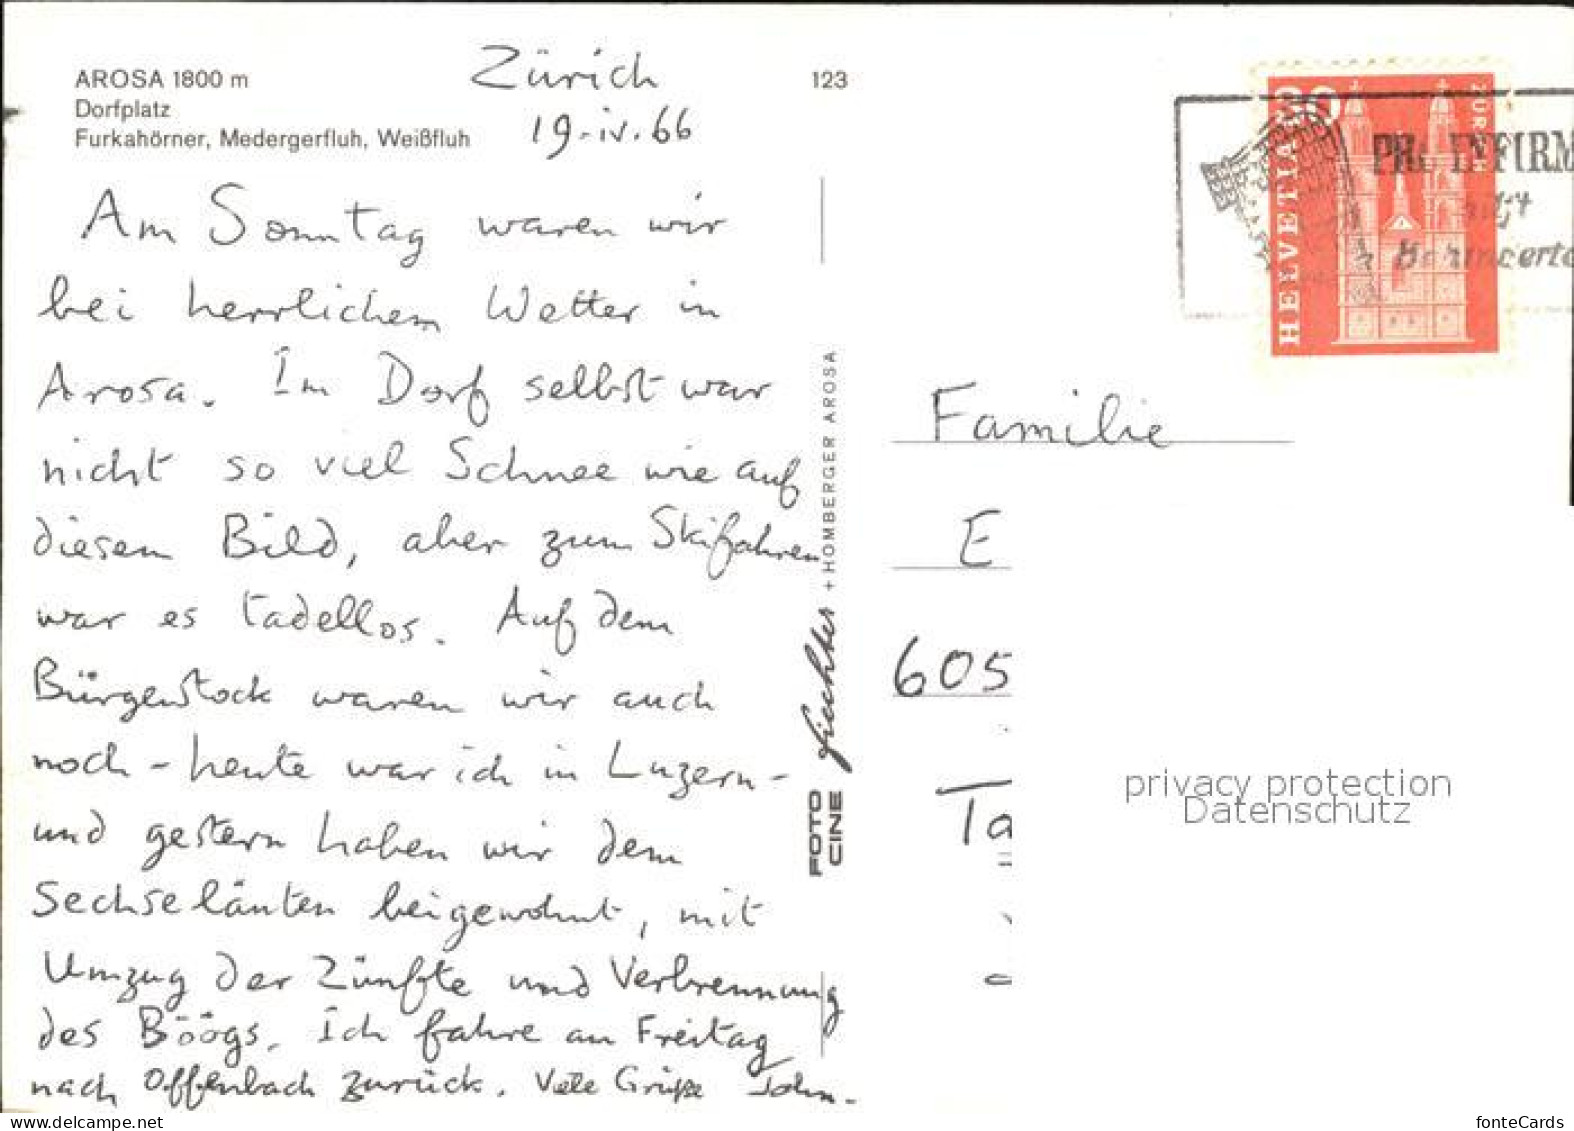 AROSA 1800 m
Dorfplatz
Furkahörner, Medergerfluh, Weißfluh
Zürich
19.iv.66
123
Am Sonntag waren wir
bei herrlichem Wetter in
Arosa. Im Dorf selbst war
nicht so viel Schnee wie auf
diesem Bild, aber zum Skifahren
war es tadellos. Auf dem
Bürgenstock waren wir auch
noch - heute war ich in Luzern -
und gestern haben wir dem
Sechseläuten beigewohnt, mit
Umzug der Zünfte und Verbrennung
des Böögs. Ich fahre am Freitag
nach Offenbach zurück. Viele Grüße John.
FOTO
CINE
+ HOMBERGER AROSA
HELVETIA
ZÜRICH
INFIRM
Familie
E
605
Ta
privacy protection
Datenschutz
www.delcampe.net
fonteCards